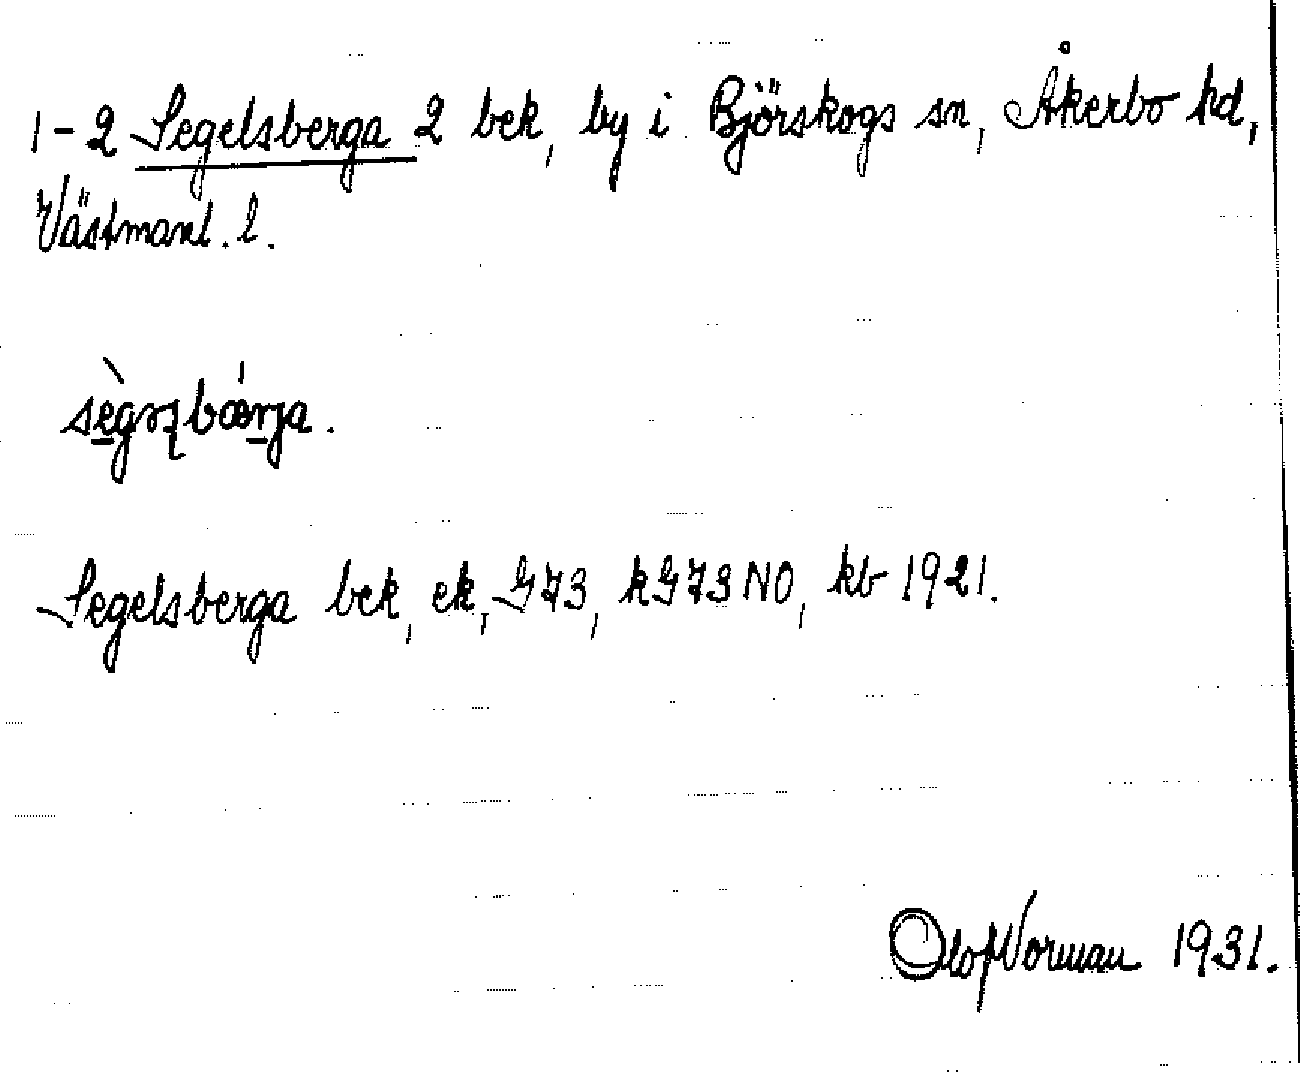 1-2 Segelsberga 2 bek, by i Björskogs sn, Åkerbo hd,
Västmanl. l.
Segelsberga bek, ek, G73, kG73NO, kb 1921.
Olof Norman 1931.